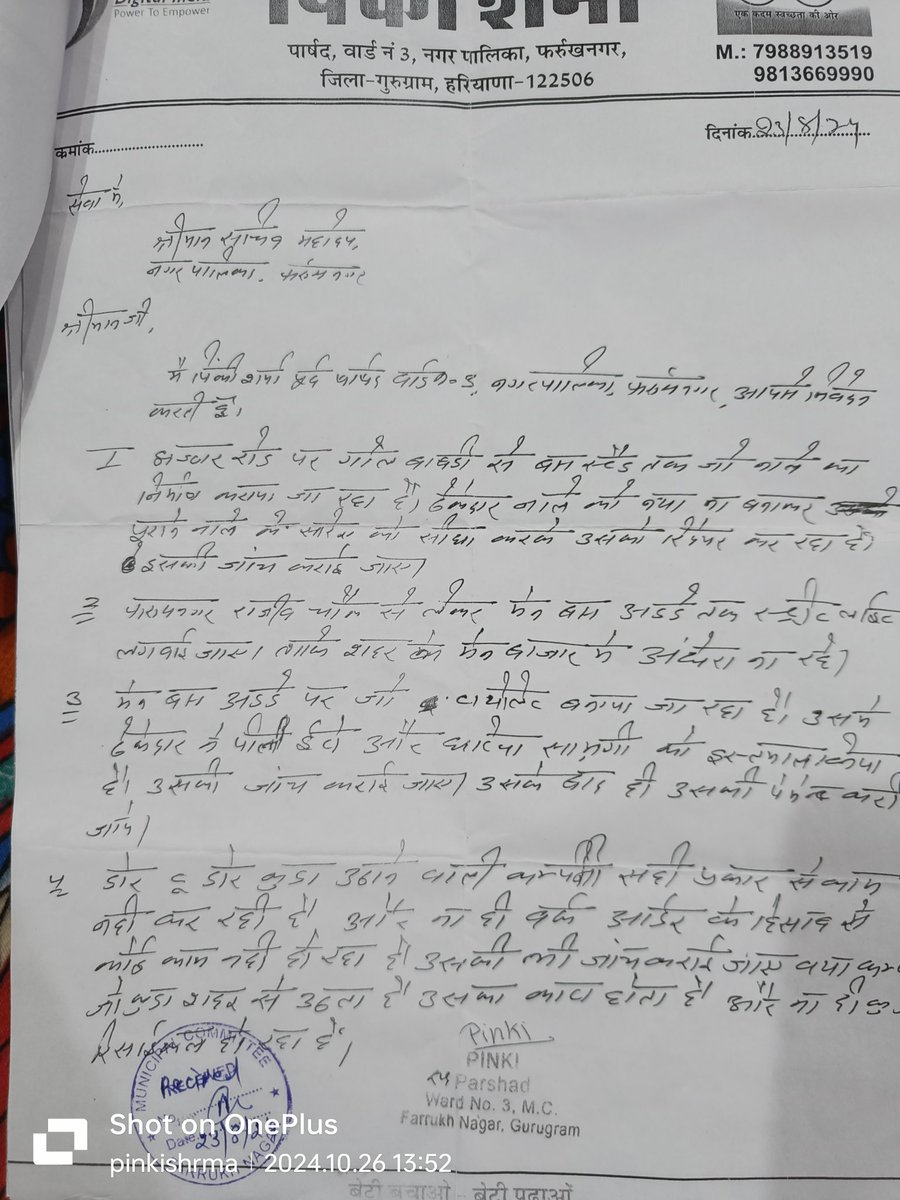 Digital India
Power To Empower
पिंकी शर्मा
एक कदम स्वच्छता की ओर
पार्षद, वार्ड नं 3, नगर पालिका, फर्रुखनगर,
जिला-गुरुग्राम, हरियाणा-122506
M.: 7988913519
9813669990
कमांक
दिनांक 23/8/24
सेवा में,
श्रीमान सचिव महोदय,
नगर पालिका, फरुखनगर
श्रीमान जी,
मैं पिंकी शर्मा पूर्व पार्षद वार्ड न० 3, नगरपालिका, फरुखनगर, आपसे निवेदन
करती हूँ।
I झज्जर रोड पर गोल बावडी से बस स्टैंड तक जो नाले का
निर्माण कराया जा रहा है। ठेकेदार नाले को नया ना बनाकर
पुराने नाले के सरिए को सीधा करके उसको रिपेयर कर रहा है।
इसकी जांच कराई जाए।
2 फारुखनगर राजीव चौक से लेकर मेन बस अडडे तक स्ट्रीट लाईट
लगवाई जाए। ताकि शहर के मेन बाजार में अंधेरा ना रहे।
3 मेन बस अडडे पर जो टायलेट बनाया जा रहा है। उसमे
ठेकेदार ने पीली ईंटो और घटिया सामग्री का इस्तेमाल किया
है। उसकी जांच कराई जाए। उसके बाद ही उसकी पेमेंट करी
जाये।
4 डोर टू डोर कुडा उठाने वाली कम्पनी सही प्रकार से काम
नही कर रही है। और ना ही वर्क आर्डर के हिसाब से
कोई काम नही हो रहा है। उसकी भी जांच कराई जाए
जो कुडा शहर से उठता है। उसका होता है। और ना ही
रिसाईकल हो रहा है।
Pinki
PINKI
Parshad
Ward No. 3, M.C.
Farrukh Nagar, Gurugram
MUNICIPAL COMMITTEE
RECEIVED
Date 23/8/
FARRUKH NAGAR
Shot on OnePlus
pinkishrma | 2024.10.26 13:52
बेटी बचाओ - बेटी पढ़ाओ